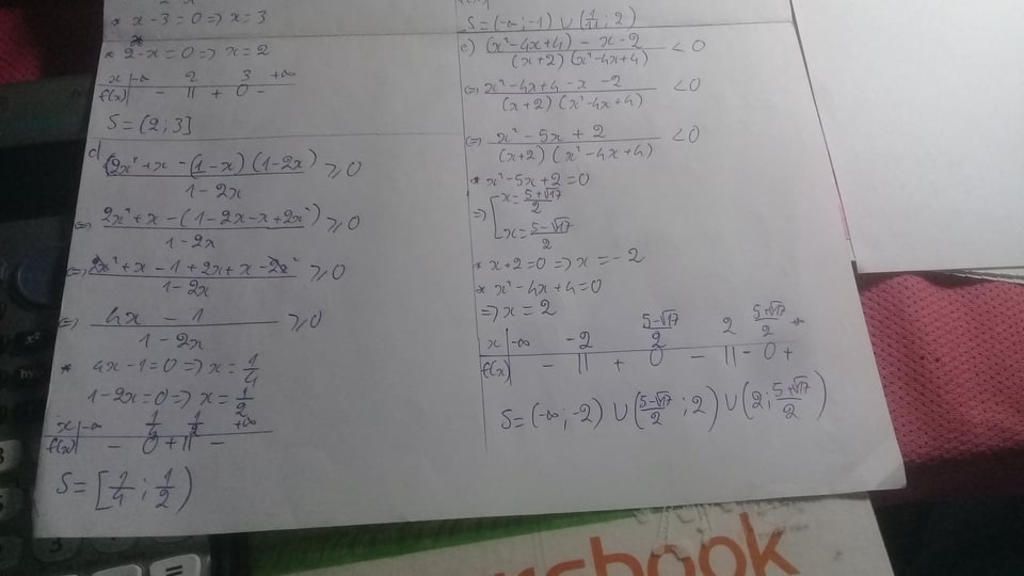 * x - 3 = 0 => x = 3
* 2 - x = 0 => x = 2
x | -∞ 2 3 +∞
f(x) | - || + 0 -
S = (2 ; 3]
c)
(2x² + x - (1-x)(1-2x))/(1 - 2x) ≥ 0
<=> (2x² + x - (1 - 2x - x + 2x²))/(1 - 2x) ≥ 0
<=> (2x² + x - 1 + 2x + x - 2x²)/(1 - 2x) ≥ 0
<=> (4x - 1)/(1 - 2x) ≥ 0
* 4x - 1 = 0 => x = 1/4
1 - 2x = 0 => x = 1/2
x | -∞ 1/4 1/2 +∞
f(x) | - 0 + || -
S = [1/4 ; 1/2)
S = (-∞ ; -1) ∪ (1/11 ; 2)
e) ((x² - 4x + 4) - x - 2)/((x+2)(x² - 4x + 4)) < 0
<=> (x² - 4x + 4 - x - 2)/((x+2)(x² - 4x + 4)) < 0
<=> (x² - 5x + 2)/((x+2)(x² - 4x + 4)) < 0
* x² - 5x + 2 = 0
=> [ x = (5+√17)/2
x = (5-√17)/2
* x + 2 = 0 => x = -2
* x² - 4x + 4 = 0
=> x = 2
x | -∞ -2 (5-√17)/2 2 (5+√17)/2
f(x) | - || + 0 - || - 0 +
S = (-∞ ; -2) ∪ ((5-√17)/2 ; 2) ∪ (2 ; (5+√17)/2)
book